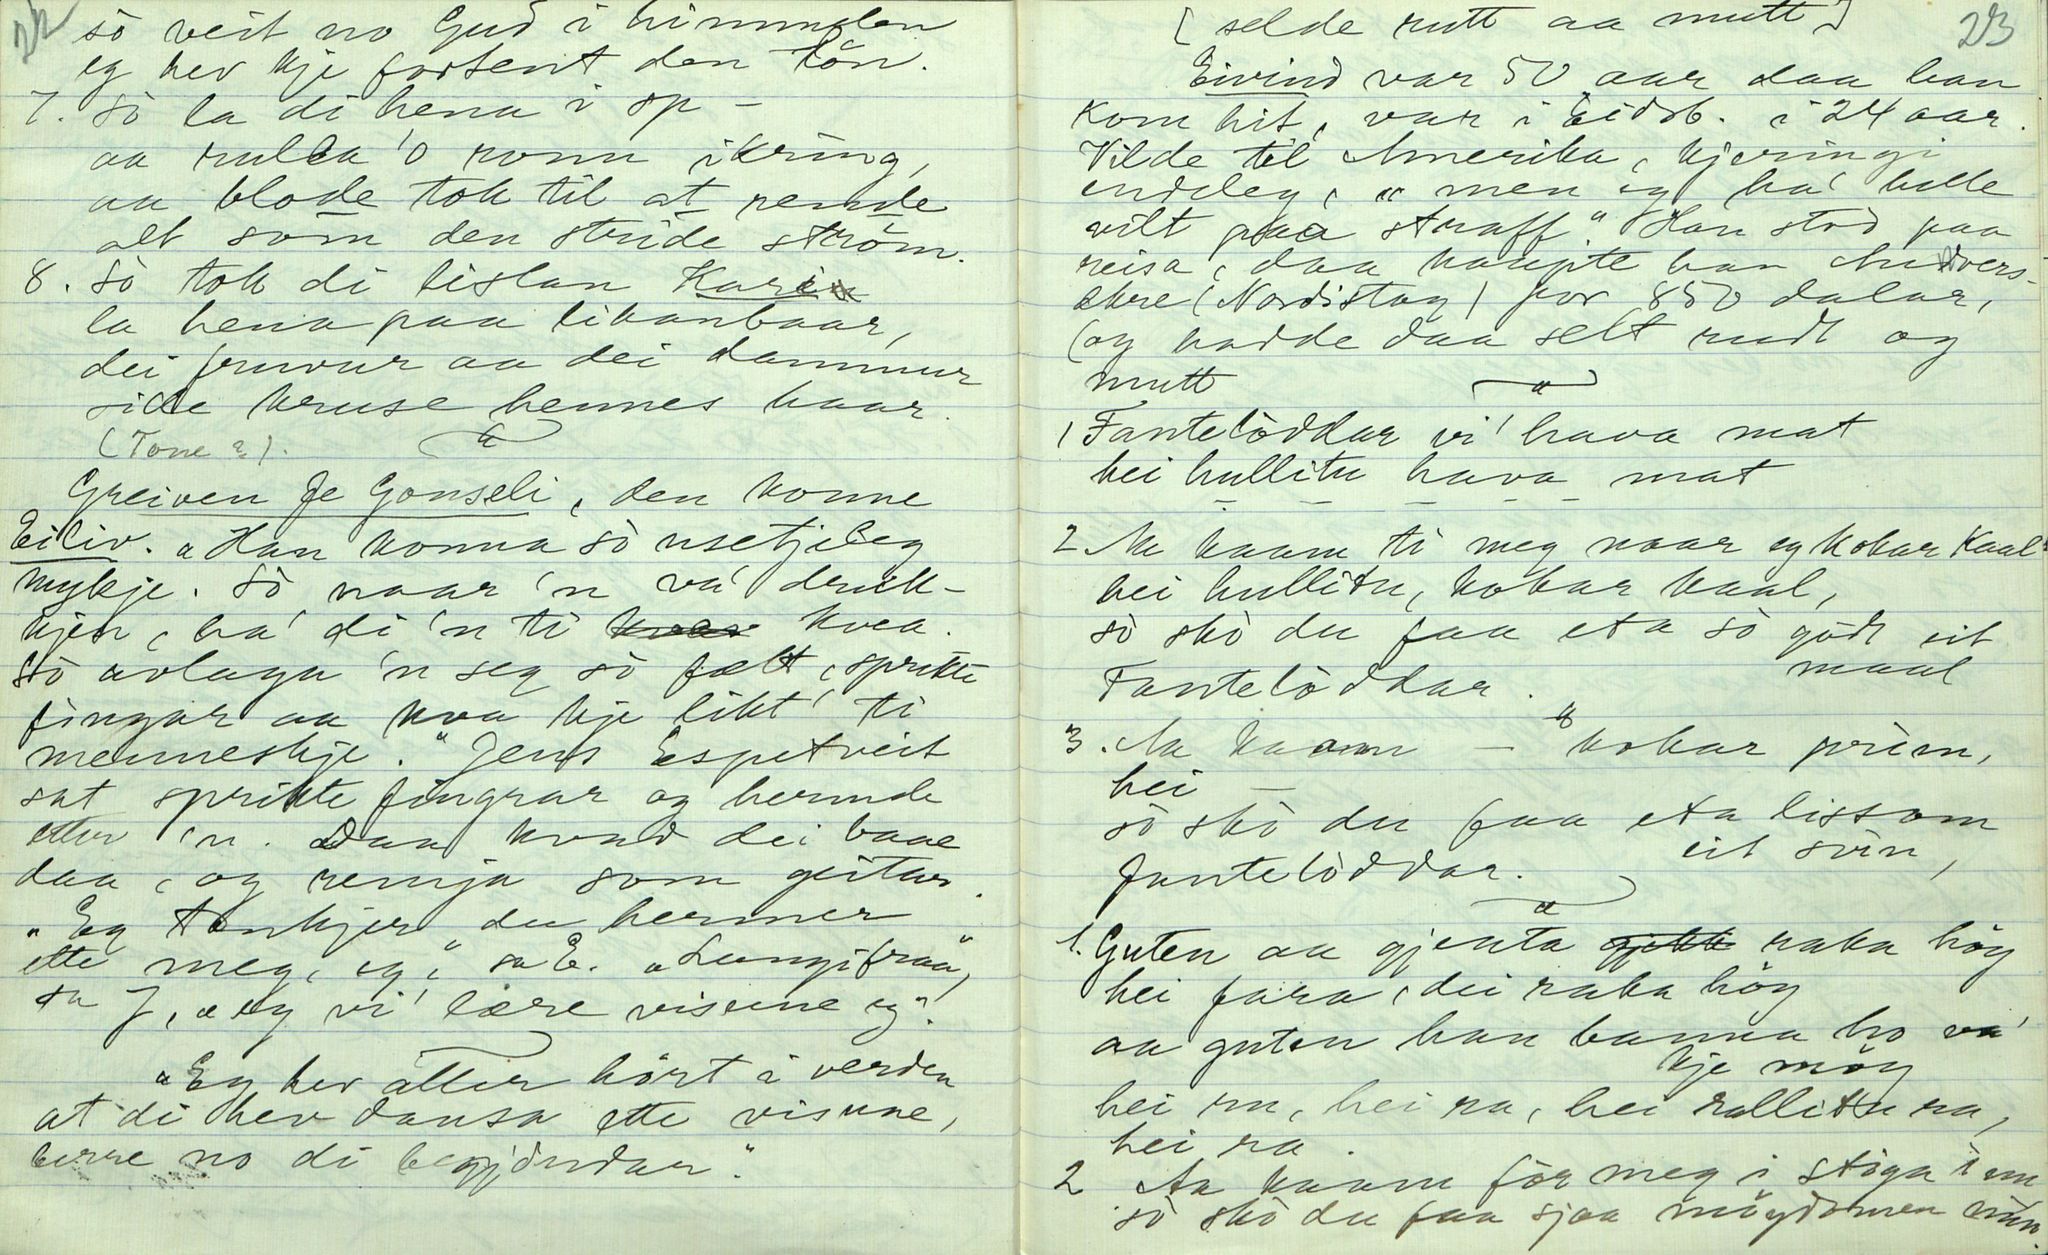 22
sò veit no Gud i himmalen
eg hev kje fortent den tön.
7. Sò la di hena i sp –
aa rulla 'o ronn ikring,
aa blode tok til at rende
alt som den stride ström.
8. Sò tok di lislan Karin
la hena paa likanbaar,
dei fruvur aa dei dammur
side kruse hennes haar.
(Tone ?).
Greiven Je Gonseli, den konne
Eiliv. "Han konna sò usetjeleg
mykje. Sò naar 'n va' druk-
kjen, ha' di 'n ti kvea.
Sò avlaga 'n seg sò fælt, sprikte
fingar aa kva kje likt' ti
menneskje." Jens Espetveit
sat sprikte fingrar og hermde
etter 'n. Daa kvad dei baae
daa, og remja som geitar.
"Eg tenkjer du hermer
ette meg, eg," sa E. "Lengifraa",
sa J, "eg vi' lære visune eg".
"Eg hev alder hört i verden
at di hev dansa ette visune,
berre no di begjyndar".
23
[selde rutt aa mutt]
Eivind var 50 aar daa han
kom hit, var i Eidsb. i 24 aar.
Vilde til Amerika, kjeringi
endeleg, "men eg ha' helle
vilt paa straff" Han stod paa
reisa, daa kaupte han Andvers-
Ekre (Nordistog) for 850 dalar,
(og hadde daa selt rudt og
mutt
1 Fantelöddar vi' hava mat
hei hullitu hava mat
– – – –
2 Aa kaam ti meg naar eg kokar kaal
hei hullitu, kokar kaal,
sò skò du faa eta sò godt eit
maal
Fantelöddar.
3. Aa kaam – " kokar prim,
hei –
sò skò du faa eta lissom
eit svin,
fantelöddar.
1. Guten aa gjenta raka höy
hei fara, dei raka höy
aa guten han banna ho va'
kje möy
hei ra, hei ra, hei rallitu ra,
hei ra.
2 Aa kaam för meg i stöga inn
sò skò du faa sjaa möydomen min.